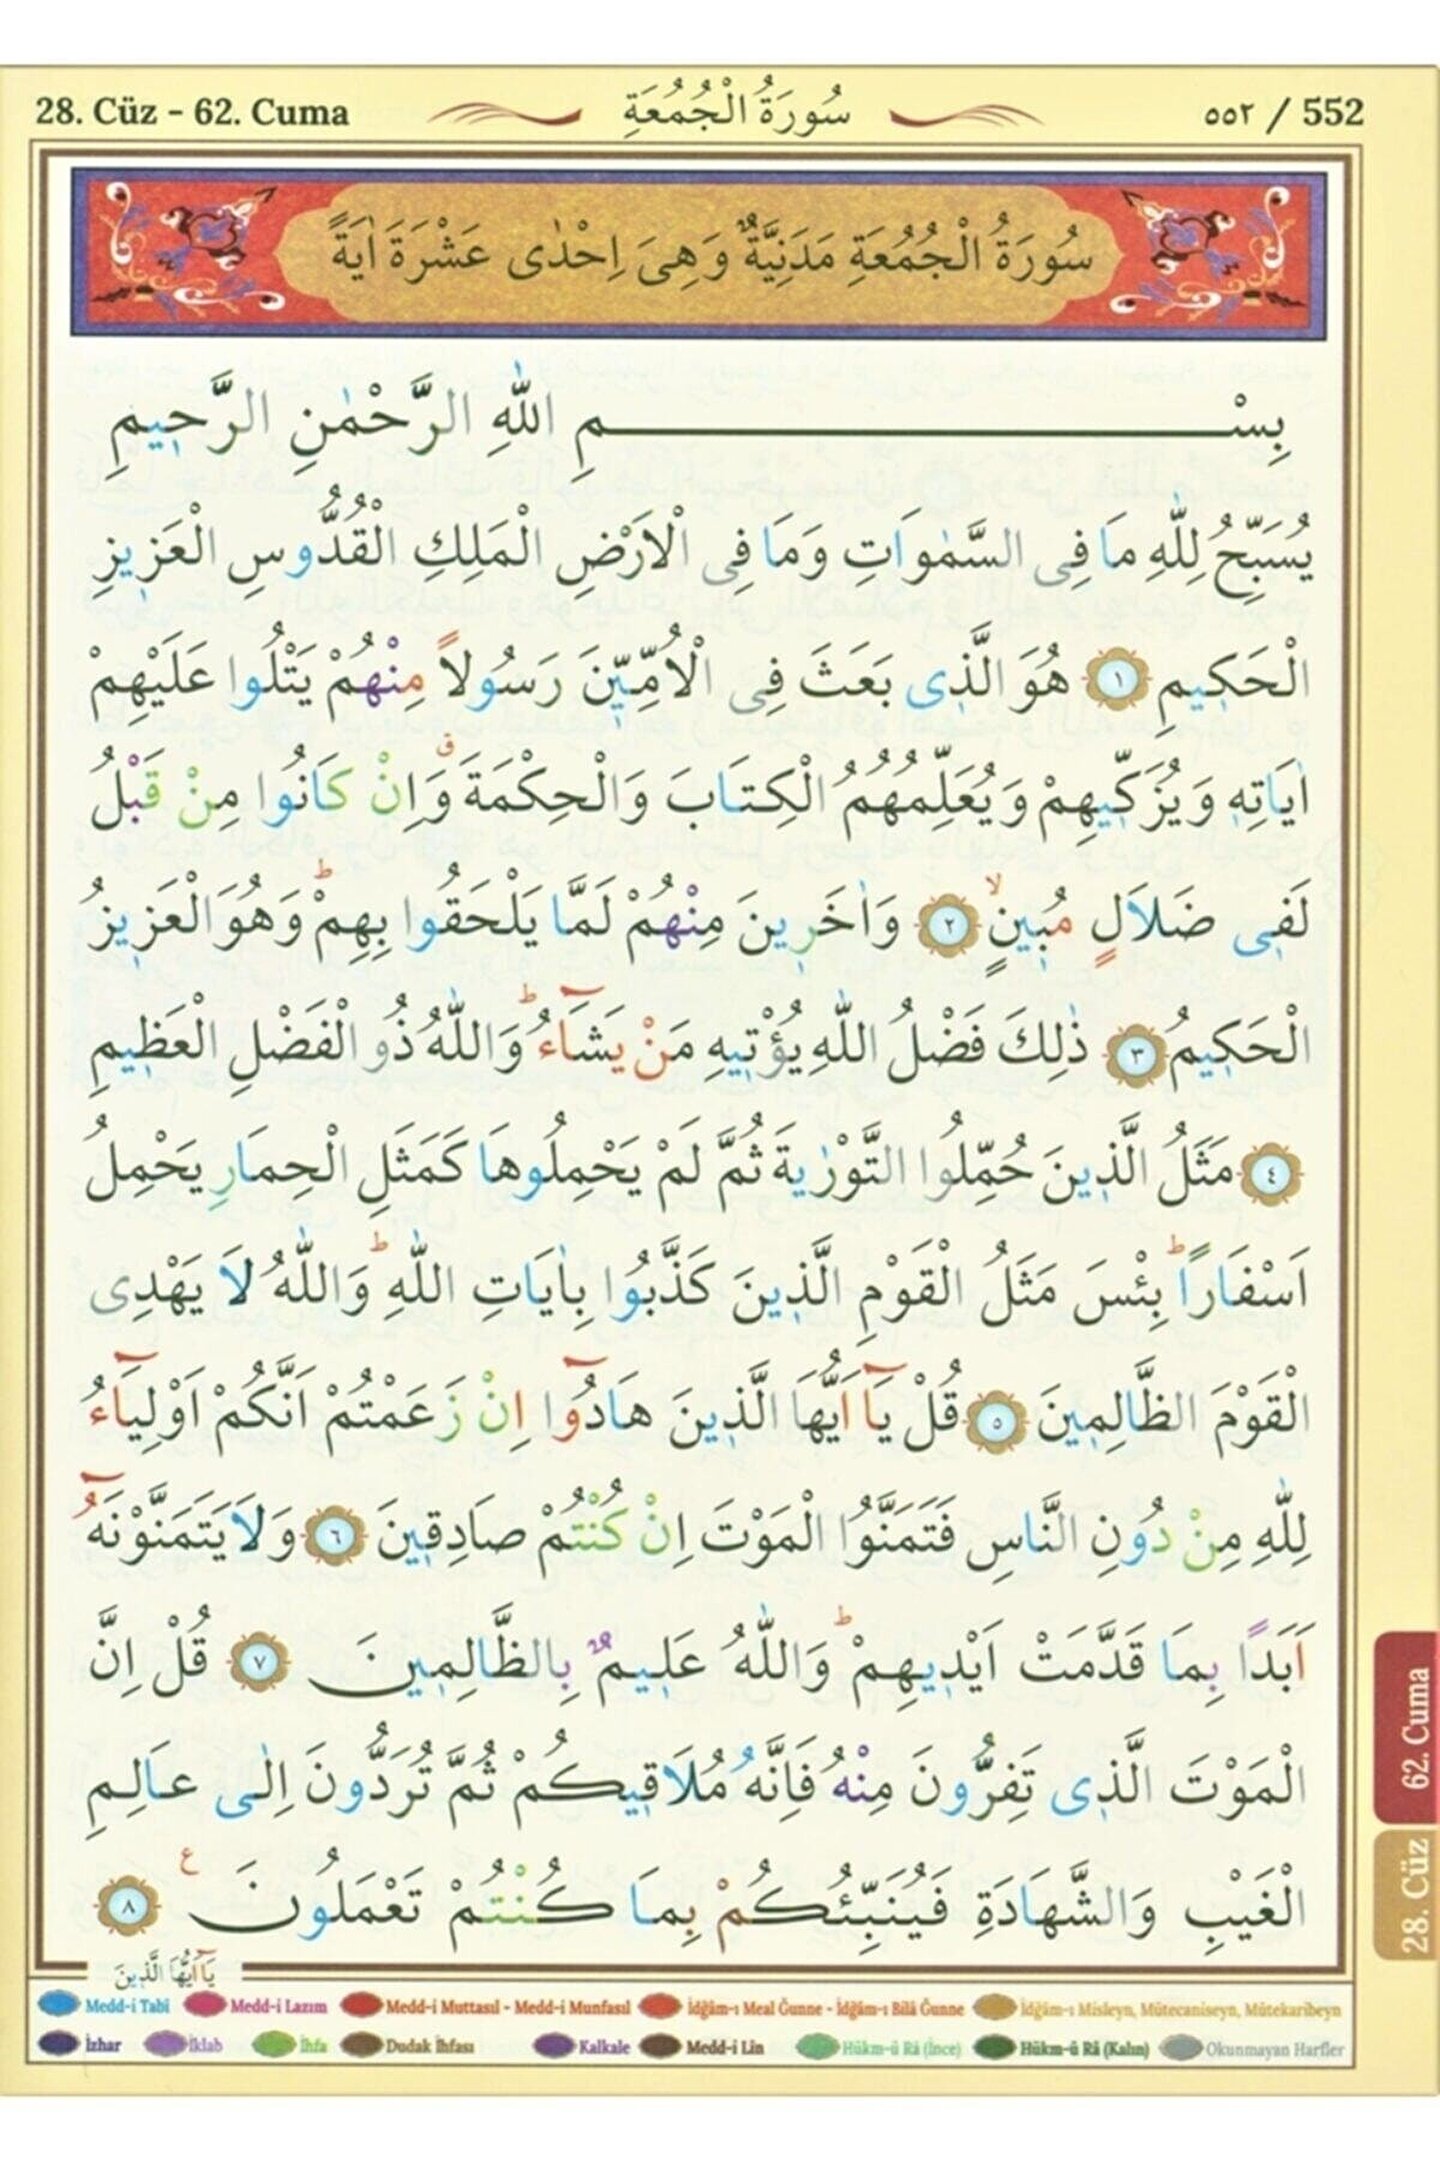 28. Cüz - 62. Cuma سُورَةُ الْجُمُعَةِ ٥٥٢ / 552
سُورَةُ الْجُمُعَةِ مَدَنِيَّةٌ وَهِىَ اِحْدٰى عَشْرَةَ اٰيَةً
بِسْمِ اللّٰهِ الرَّحْمٰنِ الرَّح۪يمِ
يُسَبِّحُ لِلّٰهِ مَا فِى السَّمٰوَاتِ وَمَا فِى الْاَرْضِ الْمَلِكِ الْقُدُّوسِ الْعَز۪يزِ
الْحَك۪يمِ ﴿١﴾ هُوَ الَّذ۪ى بَعَثَ فِى الْاُمِّيّ۪نَ رَسُولاً مِنْهُمْ يَتْلُوا عَلَيْهِمْ
اٰيَاتِه۪ وَيُزَكّ۪يهِمْ وَيُعَلِّمُهُمُ الْكِتَابَ وَالْحِكْمَةَۗ وَاِنْ كَانُوا مِنْ قَبْلُ
لَف۪ى ضَلَالٍ مُب۪ينٍۙ ﴿٢﴾ وَاٰخَر۪ينَ مِنْهُمْ لَمَّا يَلْحَقُوا بِهِمْۜ وَهُوَ الْعَز۪يزُ
الْحَك۪يمُ ﴿٣﴾ ذٰلِكَ فَضْلُ اللّٰهِ يُؤْت۪يهِ مَنْ يَشَٓاءُۜ وَاللّٰهُ ذُو الْفَضْلِ الْعَظ۪يمِ
﴿٤﴾ مَثَلُ الَّذ۪ينَ حُمِّلُوا التَّوْرٰيةَ ثُمَّ لَمْ يَحْمِلُوهَا كَمَثَلِ الْحِمَارِ يَحْمِلُ
اَسْفَارًاۜ بِئْسَ مَثَلُ الْقَوْمِ الَّذ۪ينَ كَذَّبُوا بِاٰيَاتِ اللّٰهِۜ وَاللّٰهُ لَا يَهْدِى
الْقَوْمَ الظَّالِم۪ينَ ﴿٥﴾ قُلْ يَٓا اَيُّهَا الَّذ۪ينَ هَادُٓوا اِنْ زَعَمْتُمْ اَنَّكُمْ اَوْلِيَٓاءُ
لِلّٰهِ مِنْ دُونِ النَّاسِ فَتَمَنَّوُا الْمَوْتَ اِنْ كُنْتُمْ صَادِق۪ينَ ﴿٦﴾ وَلَا يَتَمَنَّوْنَهُٓ
اَبَدًا بِمَا قَدَّمَتْ اَيْد۪يهِمْۜ وَاللّٰهُ عَل۪يمٌ بِالظَّالِم۪ينَ ﴿٧﴾ قُلْ اِنَّ
الْمَوْتَ الَّذ۪ى تَفِرُّونَ مِنْهُ فَاِنَّهُ مُلَاق۪يكُمْ ثُمَّ تُرَدُّونَ اِلٰى عَالِمِ
الْغَيْبِ وَالشَّهَادَةِ فَيُنَبِّئُكُمْ بِمَا كُنْتُمْ تَعْمَلُونَ ع ﴿٨﴾
يَٓا اَيُّهَا الَّذ۪ينَ
Medd-i Tabî Medd-i Lazım Medd-i Muttasıl - Medd-i Munfasıl İdğâm-ı Meal Ğunne - İdğâm-ı Bilâ Ğunne İdğâm-ı Misleyn, Mütecaniseyn, Mütekaribeyn
İzhar İklab İhfa Dudak İhfası Kalkale Medd-i Lin Hükm-ü Râ (İnce) Hükm-ü Râ (Kalın) Okunmayan Harfler
62. Cuma
28. Cüz